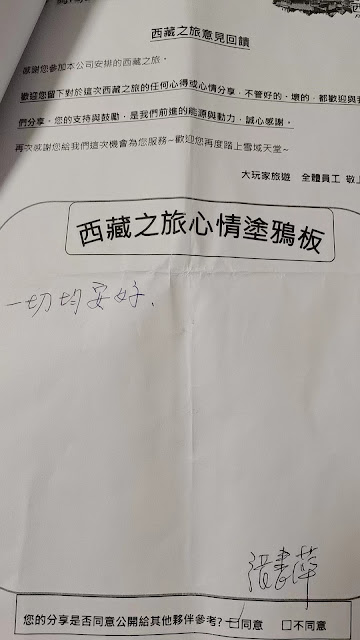 西藏之旅意見回饋
感謝您參加本公司安排的西藏之旅。
歡迎您留下對於這次西藏之旅的任何心得或心情分享，不管好的、壞的，都歡迎與我
們分享。您的支持與鼓勵，是我們前進的能源與動力，誠心感謝。
再次感謝您給我們這次機會為您服務~歡迎您再度踏上雪域天堂~
大玩家旅遊 全體員工 敬上
西藏之旅心情塗鴉板
一切均安好.
您的分享是否同意公開給其他夥伴參考? □同意 □不同意